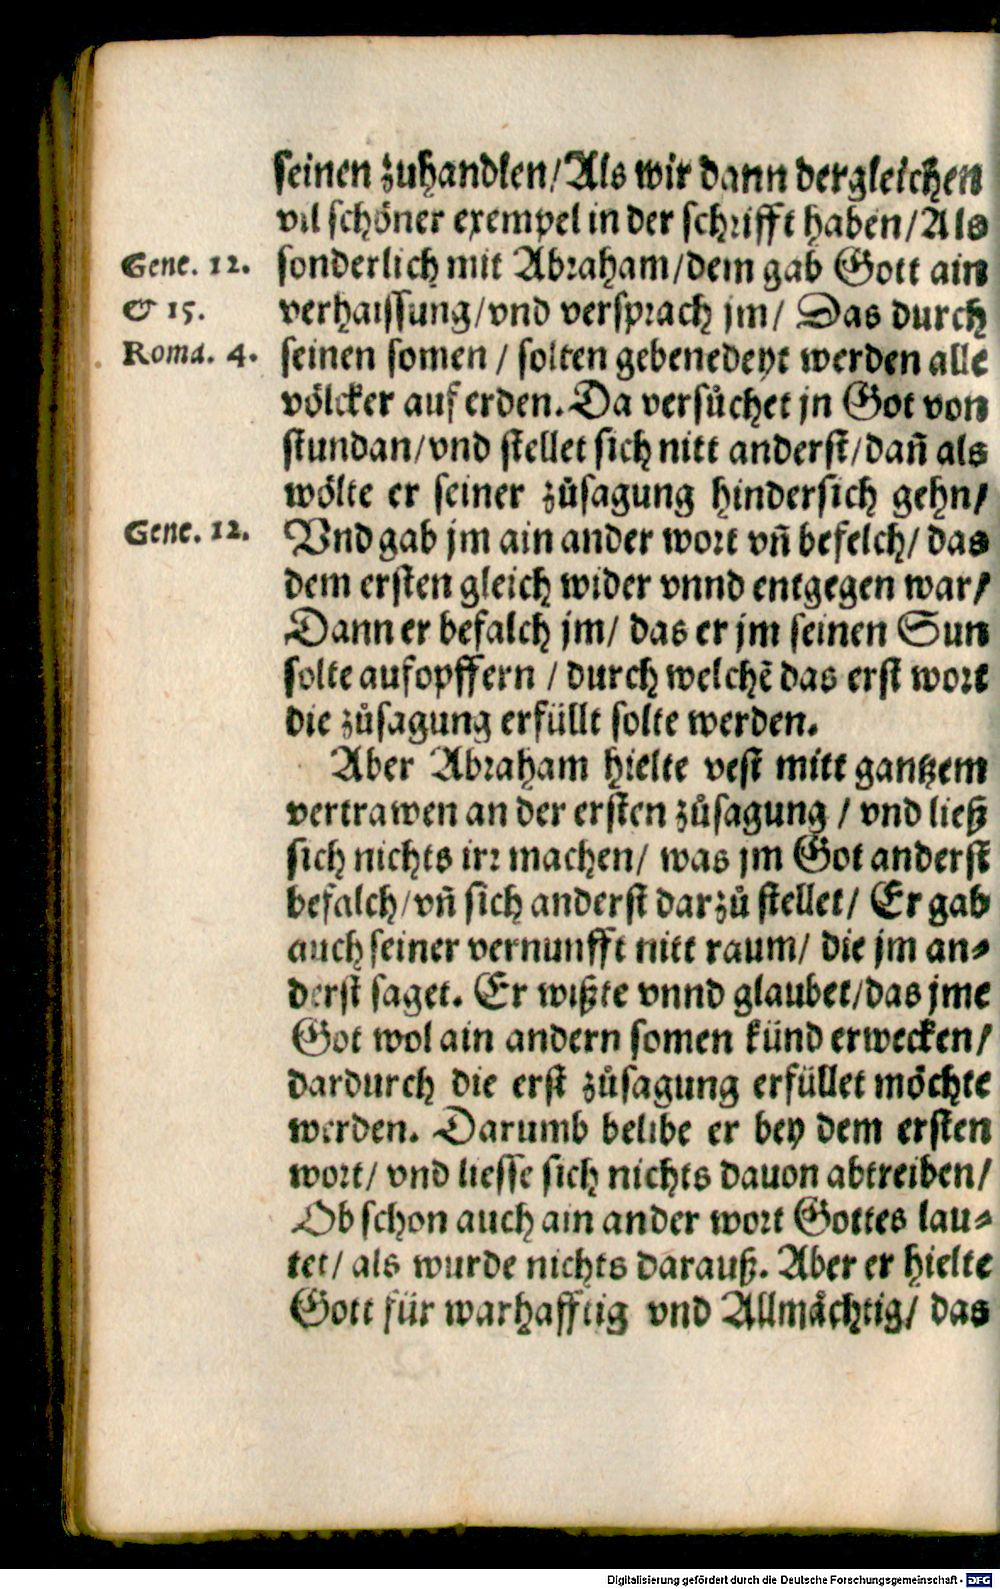 seinen zuhandlen/Als wir dann dergleichen
vil schöner exempel in der schrifft haben/Als
Gene. 12. sonderlich mit Abraham/dem gab Gott ain
& 15. verhaissung/vnd versprach jm/ Das durch
Roma. 4. seinen somen / solten gebenedeyt werden alle
völcker auf erden. Da versůchet jn Got von
stundan/vnd stellet sich nitt anderst/dañ als
wölte er seiner zůsagung hindersich gehn/
Gene. 12. Vnd gab jm ain ander wort vñ befelch/ das
dem ersten gleich wider vnnd entgegen war/
Dann er befalch jm/ das er jm seinen Sun
solte aufopffern / durch welchē das erst wort
die zůsagung erfüllt solte werden.
Aber Abraham hielte vest mitt gantzem
vertrawen an der ersten zůsagung / vnd ließ
sich nichts irr machen/ was jm Got anderst
befalch/vñ sich anderst darzů stellet/ Er gab
auch seiner vernunfft nitt raum/ die jm an⸗
derst saget. Er wißte vnnd glaubet/das jme
Got wol ain andern somen künd erwecken/
dardurch die erst zůsagung erfüllet möchte
werden. Darumb belibe er bey dem ersten
wort/ vnd liesse sich nichts dauon abtreiben/
Ob schon auch ain ander wort Gottes lau⸗
tet/ als wurde nichts darauß. Aber er hielte
Gott für warhafftig vnd Allmächtig/ das
Digitalisierung gefördert durch die Deutsche Forschungsgemeinschaft - DFG